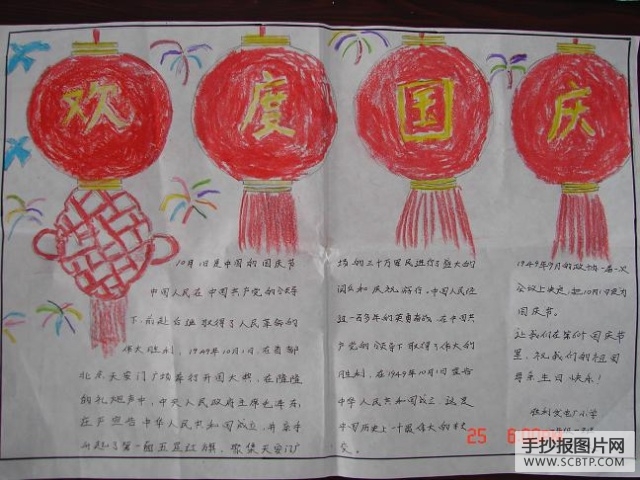 欢度国庆
10月1日是中国的国庆节
中国人民在中国共产党的领导
下,前赴后继取得了人民革命的
伟大胜利,1949年10月1日,在首都
北京天安门广场举行开国大典,在隆隆
的礼炮声中,中央人民政府主席毛泽东
在庄严宣告中华人民共和国成立,并亲手
升起了第一面五星红旗。聚集天安门广
场的三十万军民进行了盛大的
阅兵和庆祝游行。中国人民经
过一百多年的英勇奋战,在中国共
产党的领导下取得了伟大的
胜利,在1949年10月1日宣告
中华人民共和国成立,这是
中国历史上一个最伟大的转
变。
1949年9月的政协第一届一次
会议上决定,把10月1日定为
国庆节。
让我们在第61个国庆节
里,祝我们的祖国
母亲生日快乐!
小学
25
手抄报图片网
WWW.SCBTP.COM